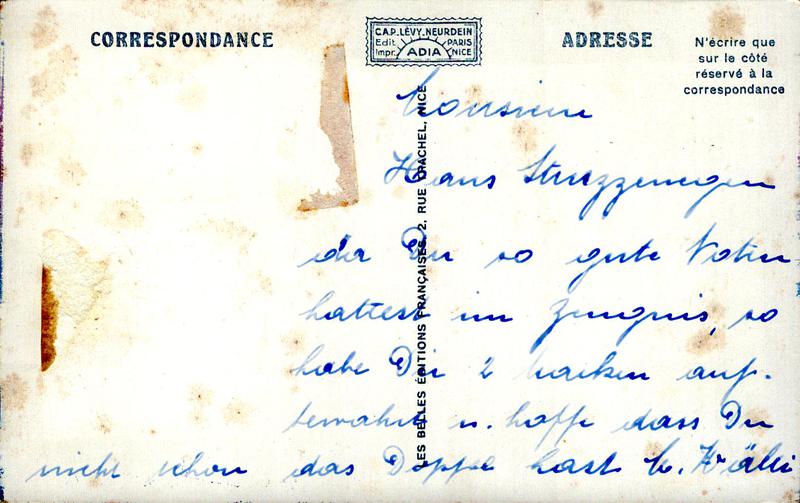 CORRESPONDANCE
CAP. LÉVY-NEURDEIN
Edit. PARIS
Impr. ADIA NICE
ADRESSE
N'écrire que
sur le côté
réservé à la
correspondance
LES BELLES ÉDITIONS FRANÇAISES, 2, RUE TRACHEL, NICE
Monsieur
Hans Struzzenegger
da Du so gute Noten
hattest im Zeugnis, so
habe Dir 2 Marken auf-
bewahrt u. hoffe dass Du
nicht schon das Doppel hast b.